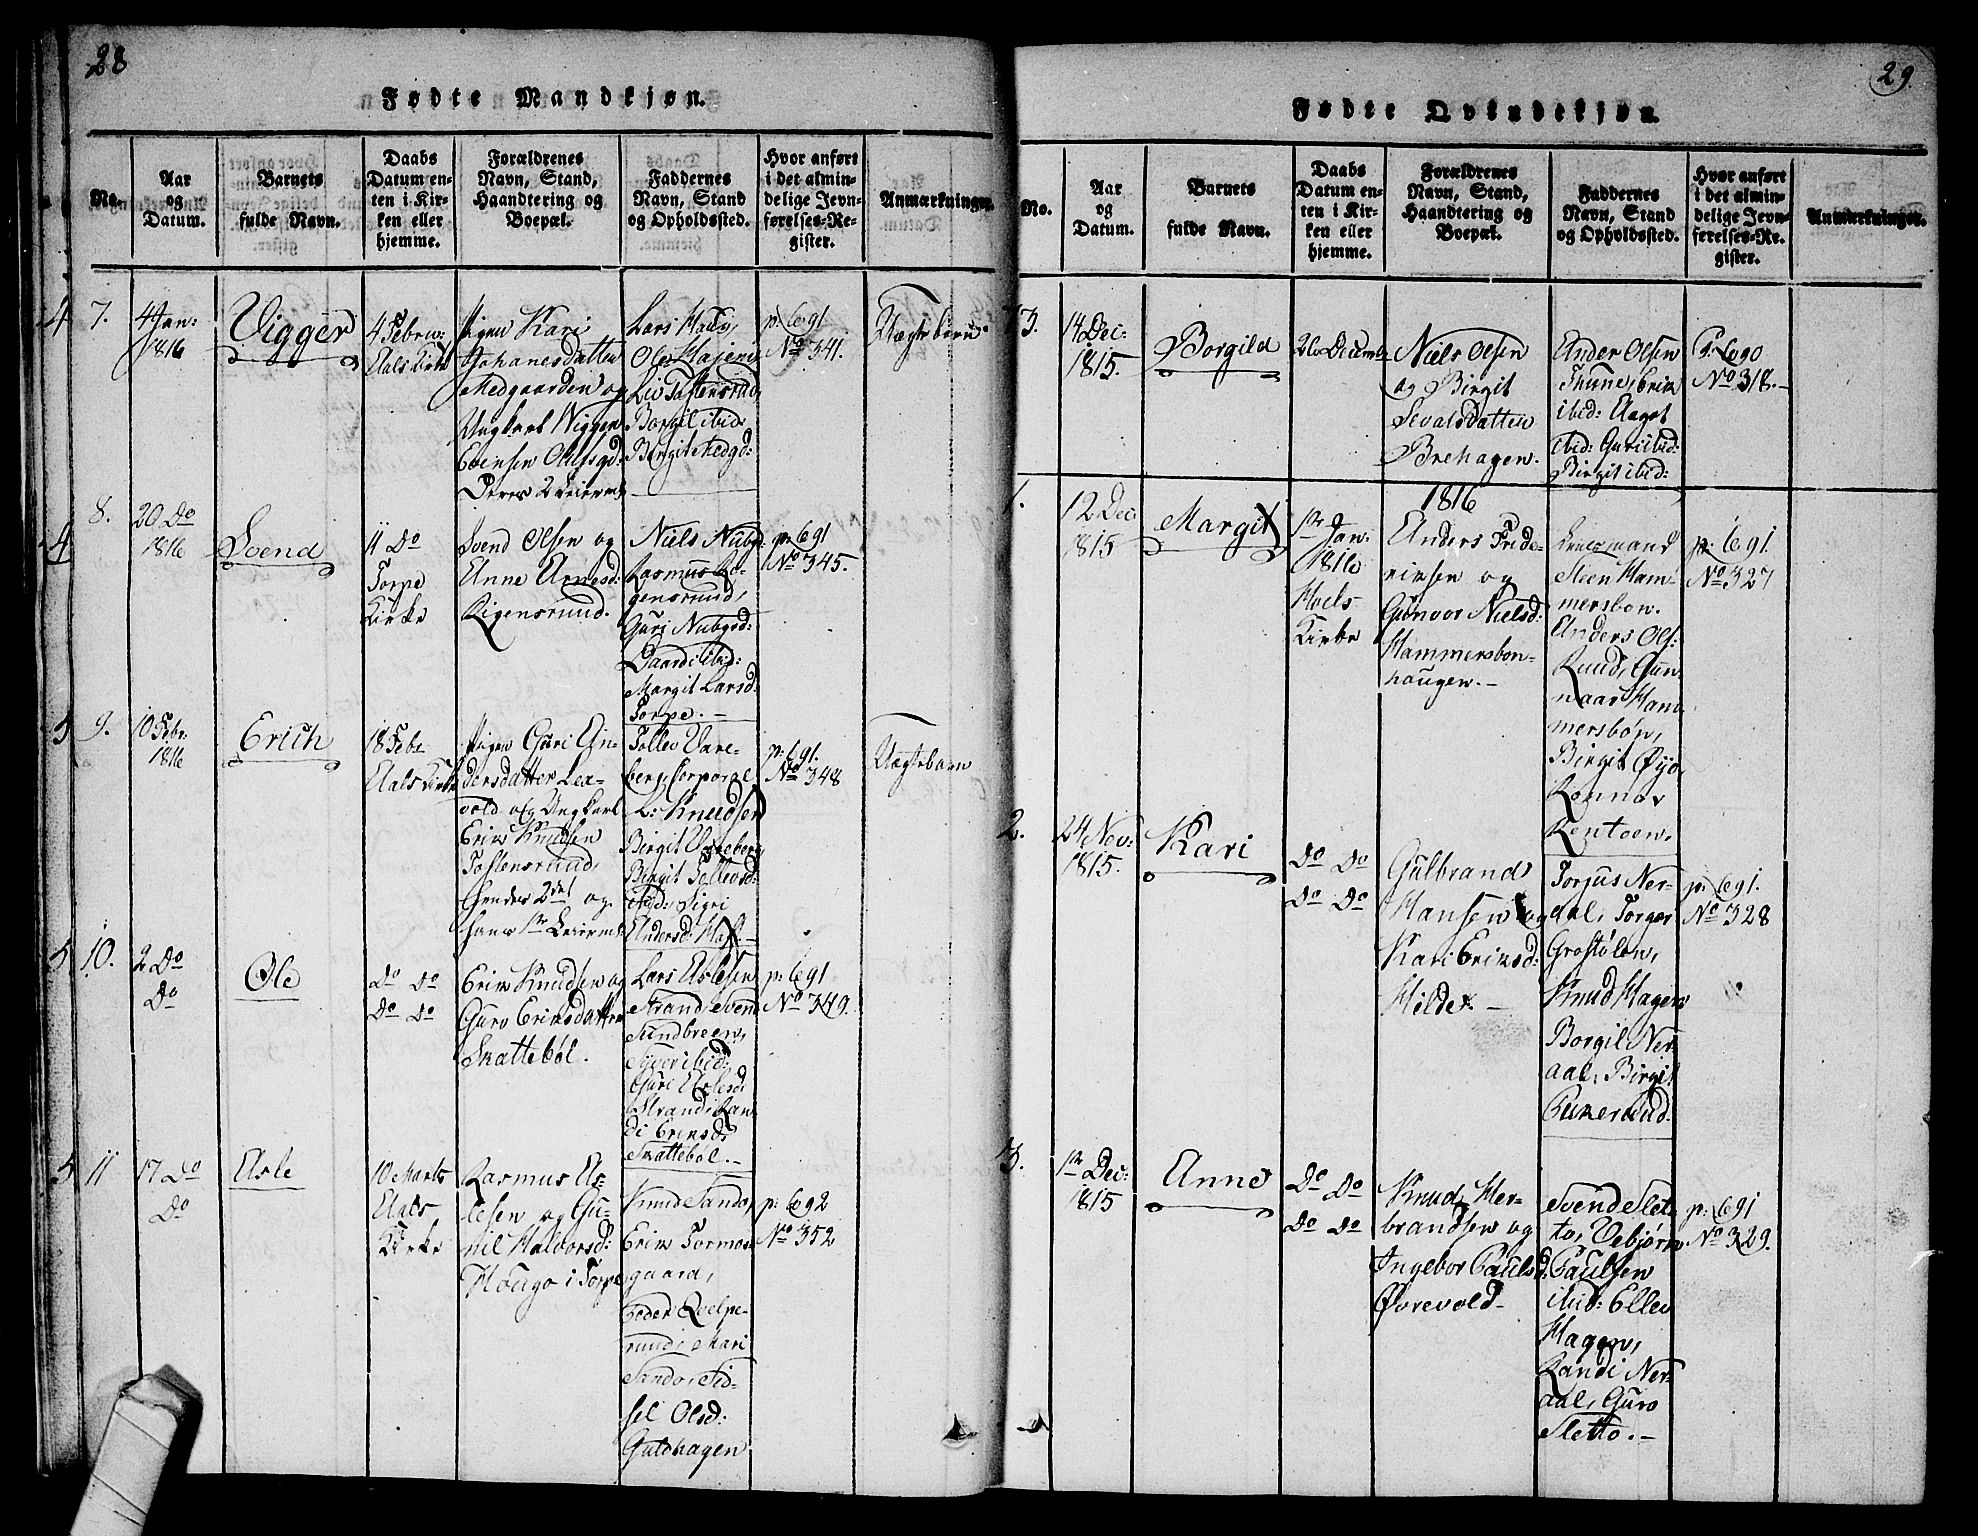 28
Fødte Mandkjøn.
No.
Aar
og
Datum.
Barnets
fulde Navn.
Daabs
Datum en-
ten i Kir-
ken eller
hjemme.
Forældrenes
Navn, Stand,
Haandtering og
Boepæl.
Faddernes
Navn, Stand
og Opholdssted.
Hvor anført
i det almin-
delige Jevn-
førelses-Re-
gister.
Anmærkninger.
4 7.
4 Jan:
1816
Vigger
4 Febru:
Aals Kirke
Pigen Kari
Johanesdatter
Medgaarden og
Ungkarl Wigger
Evensen
Deres 2 Leierm:
Lars
Ole Hajem
Liv Tostensrud,
Borgil ibid:
Birgit Medgd:
p: 691
No 341.
Uægtebarn
8.
4
20 Do
1816
Svend
11 Do
Torpe
Kirke
Svend Olsen og
Anne Arnesd:
Rigensruud.
Niels Nubgd:
Rasmus Ro-
gensruud,
Guri Nubgd:
ibid:
Margit Larsd:
Torpe. —
p: 691
No 345.
5 9.
10 Febr:
1816
Erich
18 Febr
Aals Kirke
Pigen Guri An-
dersdatter Lea-
vold og Ungkarl
Erik Knudsen
Tostensruud,
hendes 2det og
hans 1ste Leierm:
Tollev Vare-
berg, Corporal
L: Knudsen
Birgit Vareberg
Birgit Tollevsd:
ibid: Sigri
Andersd:
p: 691.
No 348
Uægtebarn
5 10.
2 Do
Do
Ole
Do Do
Do Do
Erik Knudsen og
Guro Eriksdatter
Skattebøl.
Lars Aslesen
Strand, Svend
Sundbreen,
Siver ibid:
Guri Aslesd:
Strand, Ran-
di Eriksd:
Skattebøl. —
p: 691
No 349.
5 11
17 Do
Do
Asle
10 Marts
Aals
Kirke
Rasmus As-
lesen og Gu-
nil Halvorsd:
Hougo i Torpe
Knud Sando,
Erik Tormos-
gaard,
Peder Qvelpe-
ruud, Mari
Sando, Sid-
sel Olsd:
Guldhagen
p: 692
No 352
29.
Fødte Qvindekjøn.
No.
Aar
og
Datum.
Barnets
fulde Navn.
Daabs
Datum en-
ten i Kir-
ken eller
hjemme.
Forældrenes
Navn, Stand,
Haandtering og
Boepæl.
Faddernes
Navn, Stand
og Opholdssted.
Hvor anført
i det almin-
delige Jevn-
førelses-Re-
gister.
Anmærkninger.
73.
14 Dec:
1815.
Borgild
26 Decemb:
Niels Olsen
og Birgit
Sevalsdatter
Brehagen.
Ander Olsen
Thune, Erik
ibid: Aagot
ibid: Guri ibid:
Birgit ibid:
p: 690
No 318. —
1816
1.
12 Dec:
1815
Margit
1ste Jan:
1816
Hoels
Kirke
Anders Fride-
riksen og
Gunvor Nielsd:
Hammersbon-
haugen. —
Lensmand
Steen Ham-
mersbon.
Anders Ols:
Ruud, Gun-
naar Ham-
mersbøn,
Birgit Øyo,
Ronnov
Rentoen,
p: 691.
No 327
2.
24 Nov:
1815.
Kari
Do Do
Do Do
Gulbrand
Hansen og
Kari Eriksd:
Hilde. —
Torjus Ner-
aal, Torger
Grostølen,
Knud Hagen
Borgil Ner-
aal, Birgit
p: 691.
No 328
3.
1ste Dec:
1815
Anne
Do Do
Do Do
Knud Her-
brandsen og
Ingebor Paulsd:
Øvrevold —
Svend Slet-
to, Vebjørn
Paulsen
ibid: Ellev
Hagen,
Randi Ner-
aal, Guro
Sletto. —
p: 691
No 329.